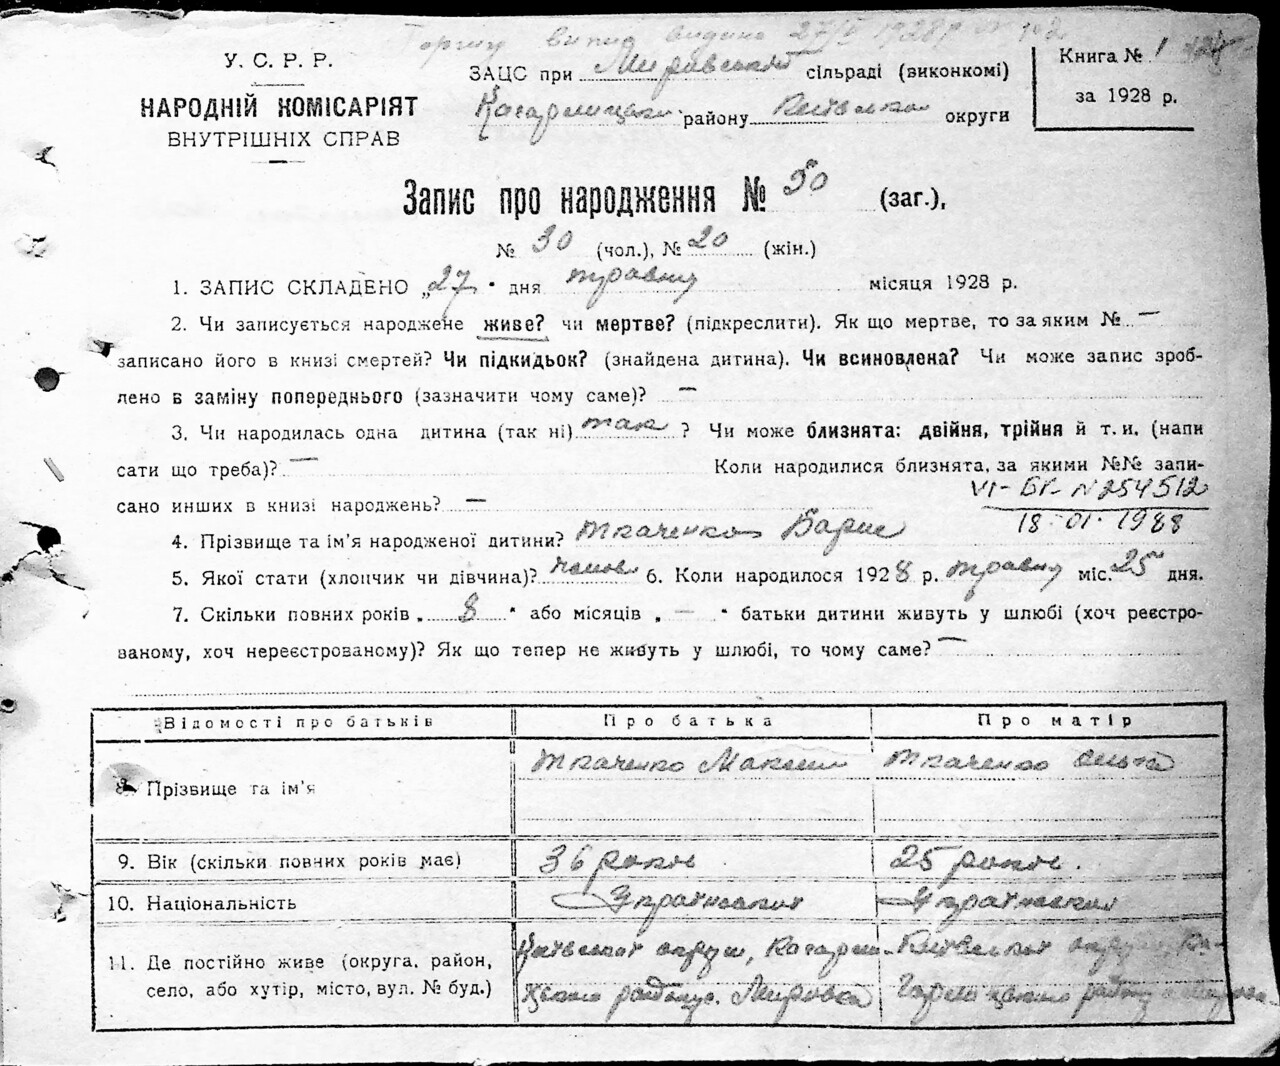 випис видано 27/V 1928 р.
У. С. Р. Р.
НАРОДНІЙ КОМІСАРІЯТ
ВНУТРІШНІХ СПРАВ
ЗАЦС при Мировській сільраді (виконкомі)
Кагарлицьком району Київської округи
Книга № 1
за 1928 р.
Запис про народження № 50 (заг.),
№ 30 (чол.), № 20 (жін.)
1. ЗАПИС СКЛАДЕНО „27" дня травня місяця 1928 р.
2. Чи записується народжене живе? чи мертве? (підкреслити). Як що мертве, то за яким № —
записано його в книзі смертей? Чи підкидьок? (знайдена дитина). Чи всиновлена? Чи може запис зроб-
лено в заміну попереднього (зазначити чому саме)? —
3. Чи народилась одна дитина (так ні) так ? Чи може близнята: двійня, трійня й т. и. (напи
сати що треба)? — Коли народилися близнята, за якими №№ запи-
сано инших в книзі народжень? —
VI-БК N254512
18·01·1988
4. Прізвище та ім'я народженої дитини? Ткаченко Борис
5. Якої стати (хлопчик чи дівчина)? чолов 6. Коли народилося 1928 р. травня міс. 25 дня.
7. Скільки повних років „ 8 " або місяців „ — " батьки дитини живуть у шлюбі (хоч реєстро-
ваному, хоч нереєстрованому)? Як що тепер не живуть у шлюбі, то чому саме? —
Відомості про батьків Про батька Про матір
8. Прізвище та ім'я Ткаченко Максим Ткаченко Ольга
9. Вік (скільки повних років має) 36 років 25 років.
10. Національність Української Української
11. Де постійно живе (округа, район, Київської округи, Кагарли- Київської округи, Ка-
село, або хутір, місто, вул. № буд.) цького району с. Мировка гарлицького району с. Мировка